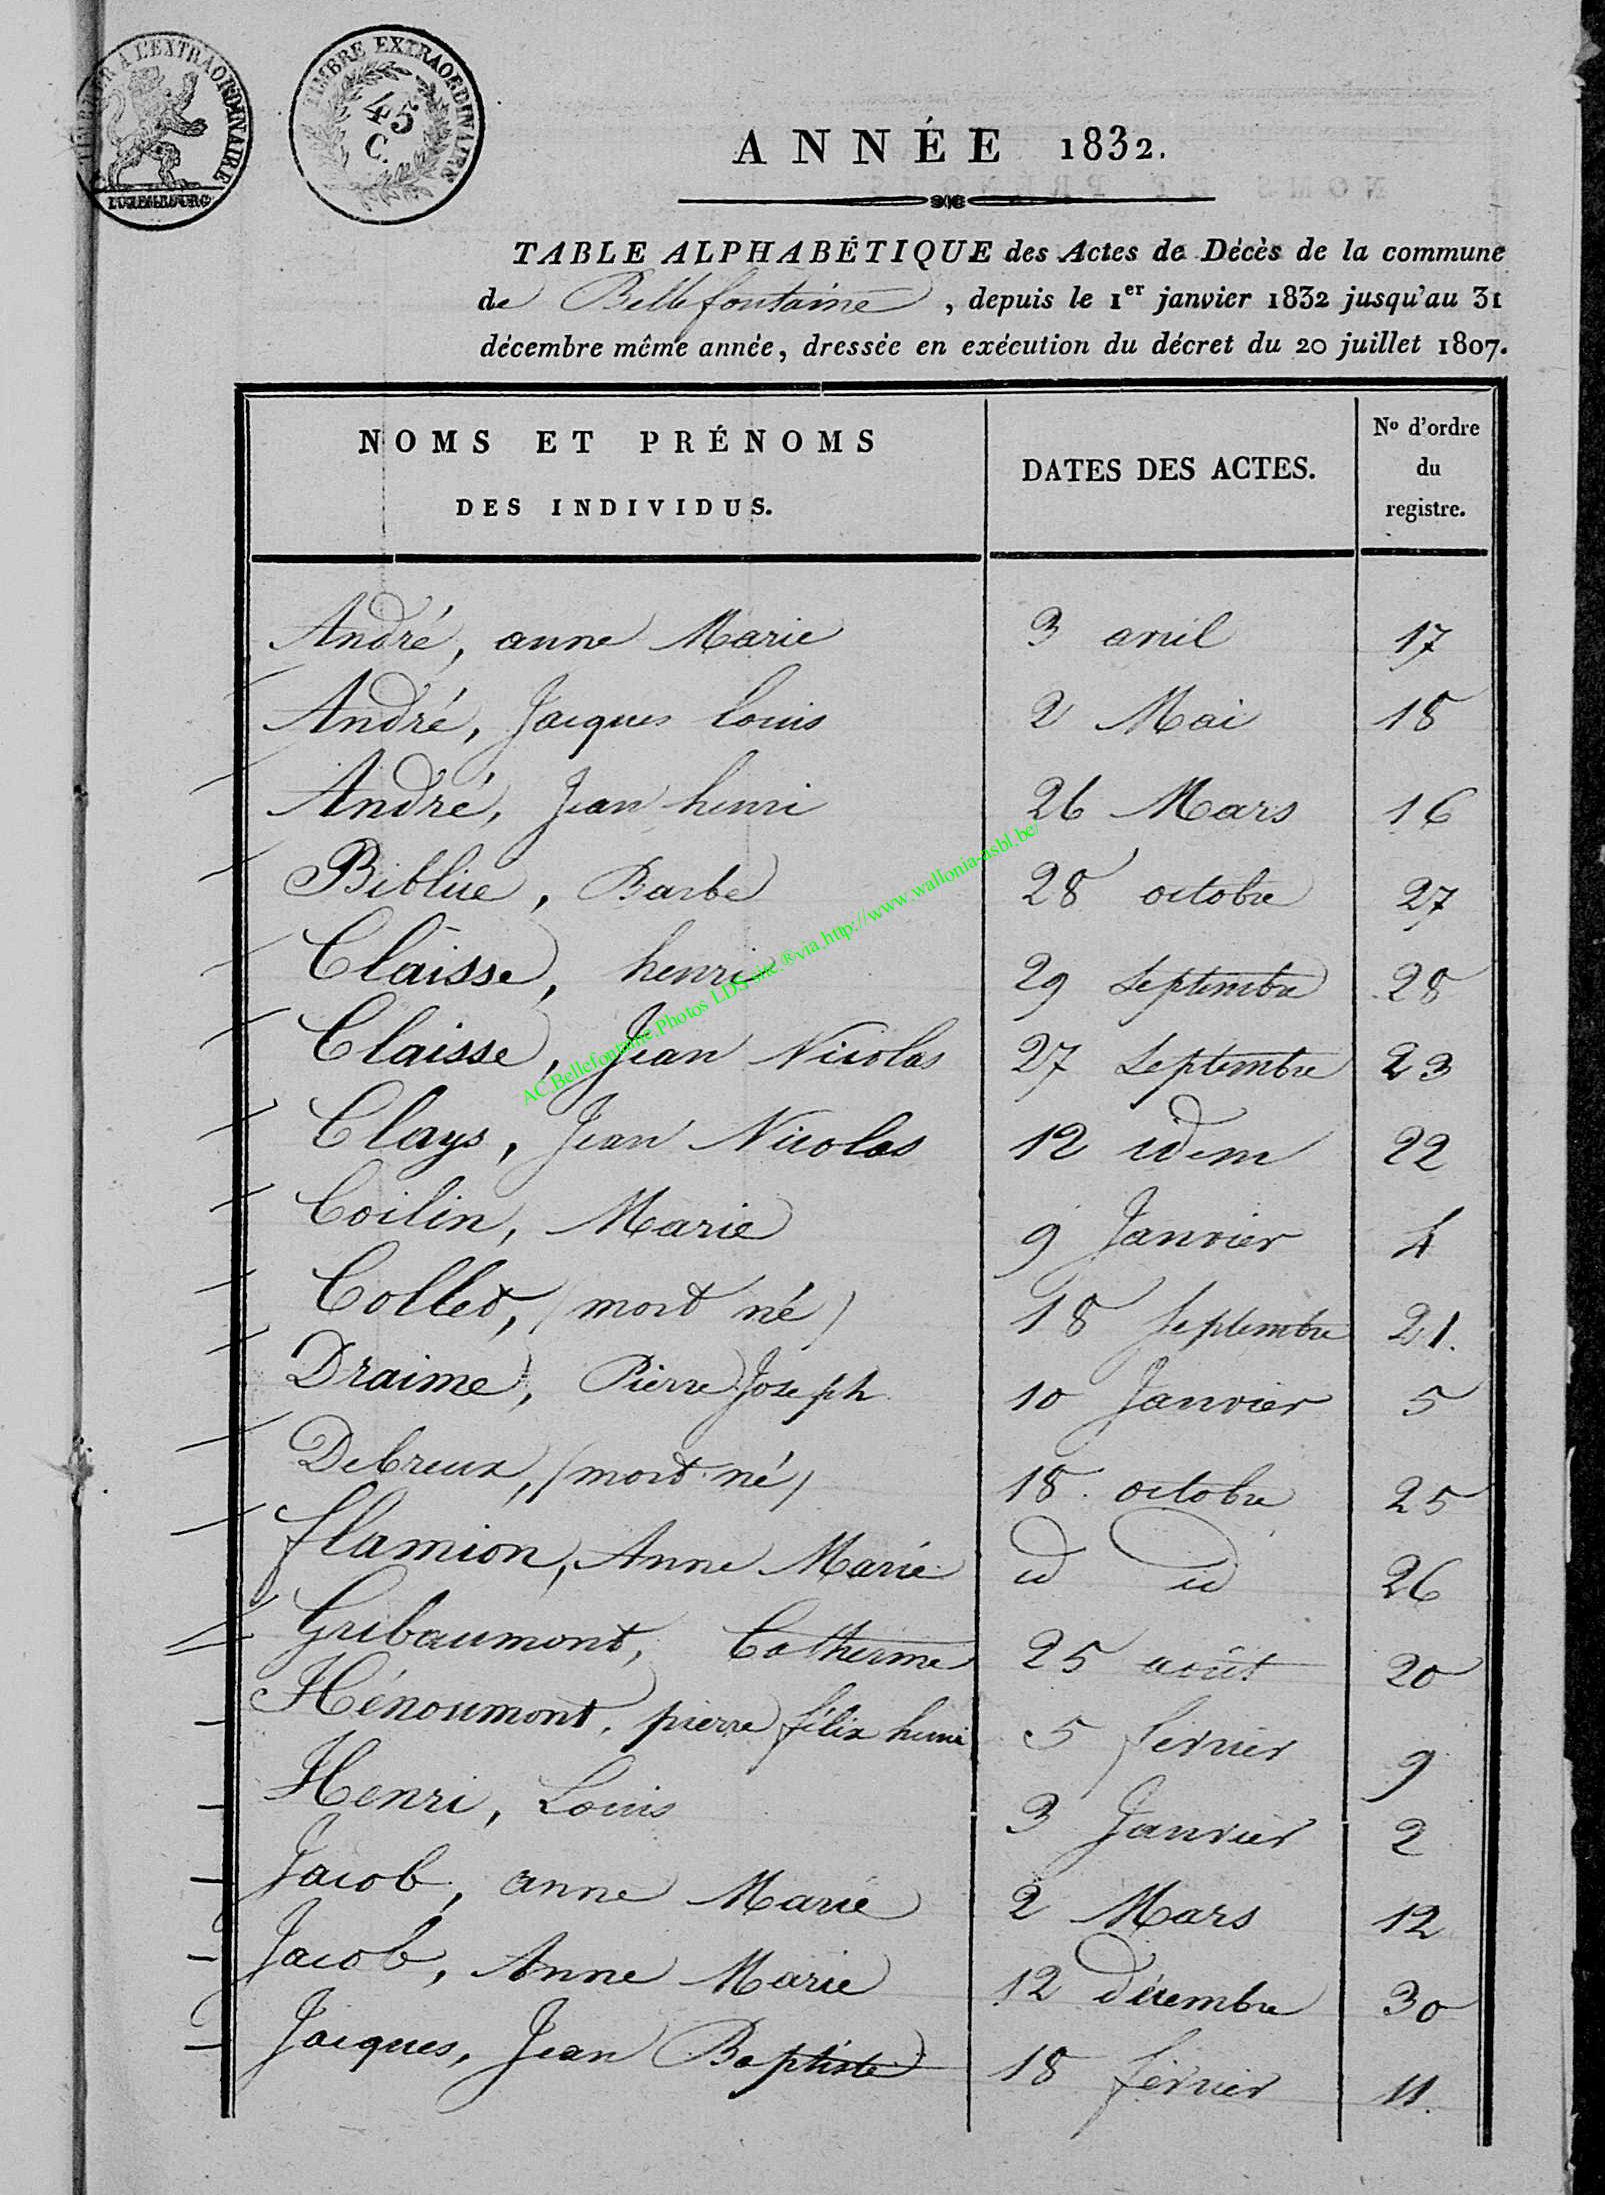 TIMBRE A L'EXTRAORDINAIRE
LUXEMBOURG
TIMBRE EXTRAORDINAIRE
45
C.
ANNÉE 1832.
TABLE ALPHABÉTIQUE des Actes de Décès de la commune
de Bellefontaine, depuis le 1er janvier 1832 jusqu'au 31
décembre même année, dressée en exécution du décret du 20 juillet 1807.
NOMS ET PRÉNOMS DES INDIVIDUS. DATES DES ACTES. No d'ordre du registre.
André, anne Marie 3 avril 17
André, Jacques louis 2 Mai 18
André, Jean henri 26 Mars 16
Biblue, Barbe 28 octobre 27
Claisse, henri 29 Septembre 28
Claisse, Jean Nicolas 27 Septembre 23
Clays, Jean Nicolas 12 idem 22
Coilin, Marie 9 Janvier 4
Collet, (mort né) 18 Septembre 21.
Draime, Pierre Joseph 10 Janvier 5
Debreux, (mort né) 18 octobre 25
flamion, Anne Marie id id 26
Gribaumont, Catherine 25 août 20
Hénoumont, pierre félix henri 5 février 9
Henri, Louis 3 Janvier 2
Jacob, anne Marie 2 Mars 12
Jacob, Anne Marie 12 décembre 30
Jacques, Jean Baptiste 18 février 11.
AC.Bellefontaine.Photos LDS site ®via http://www.wallonia-asbl.be/